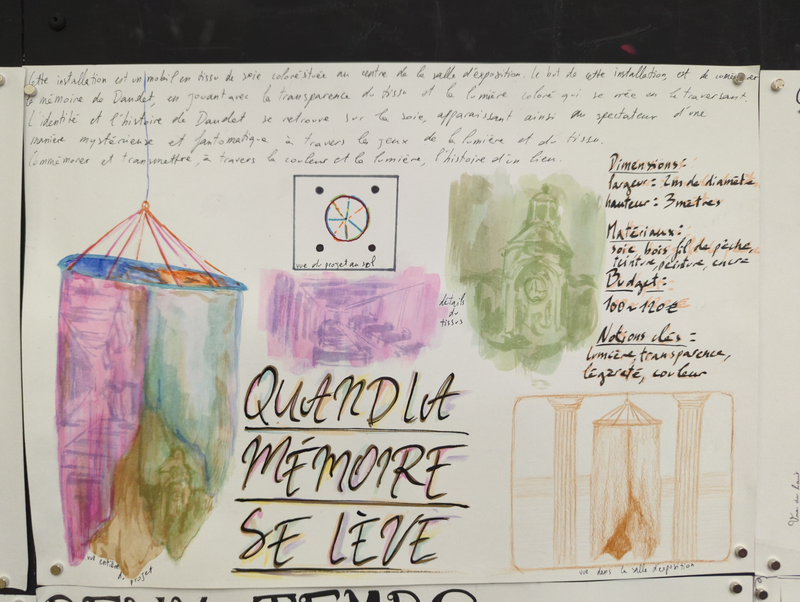 Cette installation est un mobil en tissu de soie coloré située au centre de la salle d'exposition. Le but de cette installation, est de commémorer
la mémoire de Daudet, en jouant avec la transparence du tissu et la lumière coloré qui se crée en le traversant.
L'identité et l'histoire de Daudet se retrouve sur la soie, apparaissant ainsi au spectateur d'une
manière mystérieuse et fantomatique à travers les jeux de la lumière et du tissu.
Commémorer et transmettre, à travers la couleur et la lumière, l'histoire d'un lieu.
Dimensions :
largeur = 2m de diamètre
hauteur = 3 mètres
Matériaux :
soie, bois, fil de pêche,
teinture, peinture, encre
Budget :
100 ~ 120 €
Notions clés =
lumière, transparence,
légèreté, couleur
vue du projet au sol
détails
du
tissus
QUAND LA
MÉMOIRE
SE LÈVE
vue entière
du projet
vue dans la salle d'exposition
TEMPS